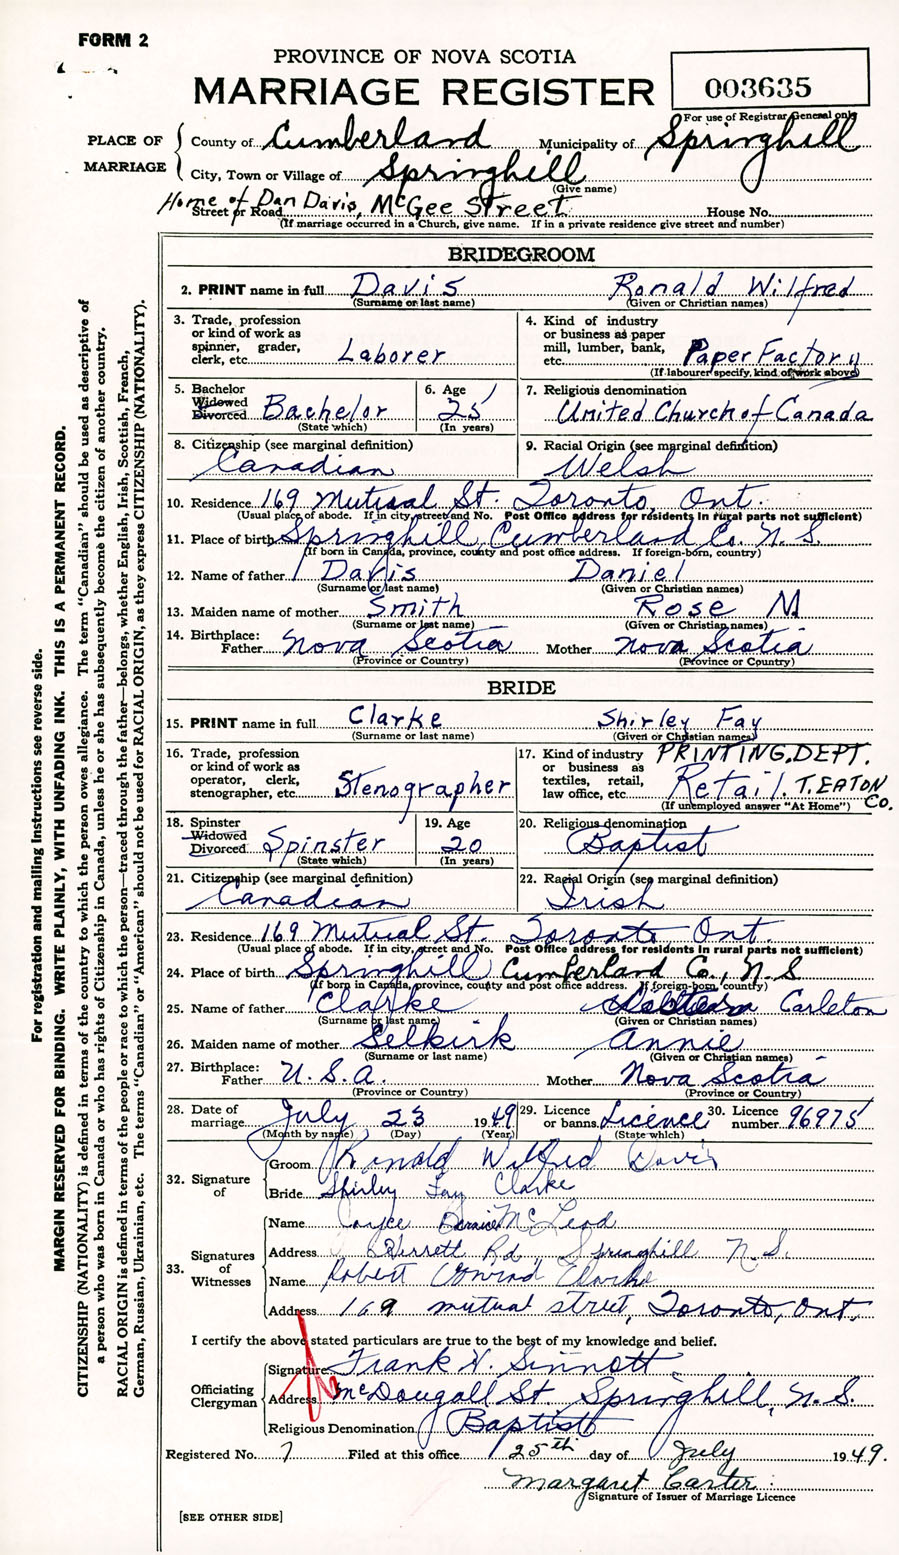 FORM 2
PROVINCE OF NOVA SCOTIA
MARRIAGE REGISTER
003635
For use of Registrar General only
PLACE OF MARRIAGE
County of Cumberland Municipality of Springhill
City, Town or Village of Springhill
(Give name)
Home of Dan Davis, McGee Street
Street or Road House No.
(If marriage occurred in a Church, give name. If in a private residence give street and number)
BRIDEGROOM
2. PRINT name in full Davis Ronald Wilfred
(Surname or last name) (Given or Christian names)
3. Trade, profession or kind of work as spinner, grader, clerk, etc. Laborer
4. Kind of industry or business as paper mill, lumber, bank, etc. Paper Factory
(If labourer specify, kind of work above)
5. Bachelor Widowed Divorced Bachelor
(State which)
6. Age 25
(In years)
7. Religious denomination
United Church of Canada
8. Citizenship (see marginal definition)
Canadian
9. Racial Origin (see marginal definition)
Welsh
10. Residence 169 Mutual St. Toronto, Ont.
(Usual place of abode. If in city, street and No. Post Office address for residents in rural parts not sufficient)
11. Place of birth Springhill Cumberland Co. N.S.
(If born in Canada, province, county and post office address. If foreign-born, country)
12. Name of father Davis Daniel
(Surname or last name) (Given or Christian names)
13. Maiden name of mother Smith Rose M
(Surname or last name) (Given or Christian names)
14. Birthplace:
Father Nova Scotia Mother Nova Scotia
(Province or Country) (Province or Country)
BRIDE
15. PRINT name in full Clarke Shirley Fay
(Surname or last name) (Given or Christian names)
16. Trade, profession or kind of work as operator, clerk, stenographer, etc. Stenographer
17. Kind of industry or business as textiles, retail, law office, etc. PRINTING. DEPT.
Retail. T. EATON Co.
(If unemployed answer "At Home")
18. Spinster Widowed Divorced Spinster
(State which)
19. Age 20
(In years)
20. Religious denomination
Baptist
21. Citizenship (see marginal definition)
Canadian
22. Racial Origin (see marginal definition)
Irish
23. Residence 169 Mutual St. Toronto Ont.
(Usual place of abode. If in city, street and No. Post Office address for residents in rural parts not sufficient)
24. Place of birth Springhill Cumberland Co., N.S
(If born in Canada, province, county and post office address. If foreign-born, country)
25. Name of father Clarke Carleton
(Surname or last name) (Given or Christian names)
26. Maiden name of mother Selkirk Annie
(Surname or last name) (Given or Christian names)
27. Birthplace:
Father U.S.A. Mother Nova Scotia
(Province or Country) (Province or Country)
28. Date of marriage July 23 1949
(Month by name) (Day) (Year)
29. Licence or banns Licence
(State which)
30. Licence number 96975
32. Signature of
Groom Ronald Wilfred Davis
Bride Shirley Fay Clarke
33. Signatures of Witnesses
Name Joyce Bernice McLeod
Address Herrett Rd, Springhill N.S.
Name Robert Conrad Clarke
Address 169 mutual street, Toronto, Ont.
I certify the above stated particulars are true to the best of my knowledge and belief.
Officiating Clergyman
Signature Frank H. Sinnott
Address McDougall St Springhill, N.S.
Religious Denomination Baptist
Registered No. 7 Filed at this office 25th day of July 1949.
Margaret Carter
Signature of Issuer of Marriage Licence
[SEE OTHER SIDE]
For registration and mailing instructions see reverse side.
MARGIN RESERVED FOR BINDING. WRITE PLAINLY, WITH UNFADING INK. THIS IS A PERMANENT RECORD.
CITIZENSHIP (NATIONALITY) is defined in terms of the country to which the person owes allegiance. The term "Canadian" should be used as descriptive of
a person who was born in Canada or who has rights of Citizenship in Canada, unless he or she has subsequently become the citizen of another country.
RACIAL ORIGIN is defined in terms of the people or race to which the person—traced through the father—belongs, whether English, Irish, Scottish, French,
German, Russian, Ukrainian, etc. The terms "Canadian" or "American" should not be used for RACIAL ORIGIN, as they express CITIZENSHIP (NATIONALITY).